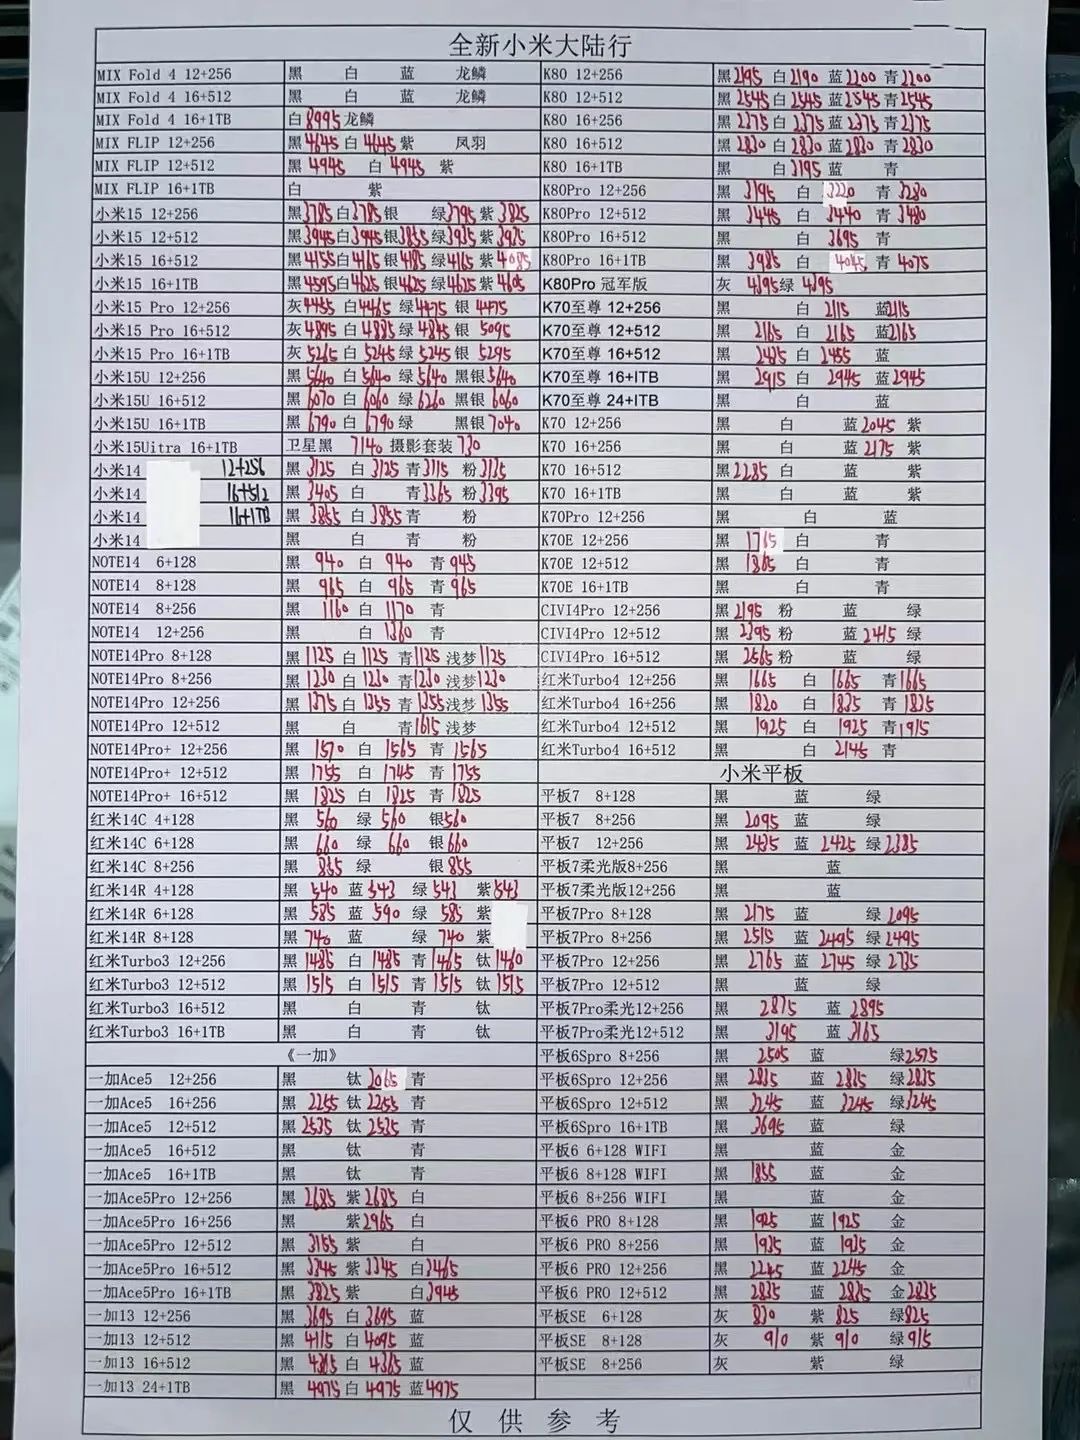 全新小米大陆行
MIX Fold 4 12+256 黑 白 蓝 龙鳞
MIX Fold 4 16+512 黑 白 蓝 龙鳞
MIX Fold 4 16+1TB 白8995龙鳞
MIX FLIP 12+256 黑4645白4645紫 凤羽
MIX FLIP 12+512 黑4945 白4945 紫
MIX FLIP 16+1TB 白 紫
小米15 12+256 黑3785白3785银 绿3795紫3825
小米15 12+512 黑3945白3945银3855绿3935紫3925
小米15 16+512 黑4155白4165银4185绿4165紫4085
小米15 16+1TB 黑4595白4625银4625绿4625紫4605
小米15 Pro 12+256 灰4455白4465绿4475银4475
小米15 Pro 16+512 灰4895白4835绿4845银5095
小米15 Pro 16+1TB 灰5265白5245绿5245银5295
小米15U 12+256 黑5640白5640绿5640黑银5640
小米15U 16+512 黑6070白6060绿6260黑银6060
小米15U 16+1TB 黑6790白6790绿 黑银7040
小米15Uitra 16+1TB 卫星黑 7140摄影套装730
小米14 12+256 黑3125 白3125青3115 粉3135
小米14 16+512 黑3405 白 青3365粉3395
小米14 16+1TB 黑3855白3855青 粉
小米14 黑 白 青 粉
NOTE14 6+128 黑940 白940 青945
NOTE14 8+128 黑965 白965 青965
NOTE14 8+256 黑1160白1170 青
NOTE14 12+256 黑 白1360青
NOTE14Pro 8+128 黑1125白1125青1125浅梦1125
NOTE14Pro 8+256 黑1230白1230青1230浅梦1230
NOTE14Pro 12+256 黑1375白1355青1355浅梦1355
NOTE14Pro 12+512 黑 白 青1615浅梦
NOTE14Pro+ 12+256 黑1570白1565青1565
NOTE14Pro+ 12+512 黑1755白1745青1755
NOTE14Pro+ 16+512 黑1825白1825青1825
红米14C 4+128 黑560 绿560 银560
红米14C 6+128 黑660 绿660 银660
红米14C 8+256 黑855 绿 银855
红米14R 4+128 黑540蓝543 绿543 紫543
红米14R 6+128 黑585蓝590 绿585 紫
红米14R 8+128 黑740 蓝 绿740 紫
红米Turbo3 12+256 黑1485白1485青1465钛1460
红米Turbo3 12+512 黑1515白1515青1515钛1515
红米Turbo3 16+512 黑 白 青 钛
红米Turbo3 16+1TB 黑 白 青 钛
《一加》
一加Ace5 12+256 黑 钛2065青
一加Ace5 16+256 黑2255钛2255青
一加Ace5 12+512 黑2535钛2535青
一加Ace5 16+512 黑 钛 青
一加Ace5 16+1TB 黑 钛 青
一加Ace5Pro 12+256 黑2685紫2685白
一加Ace5Pro 16+256 黑 紫2965白
一加Ace5Pro 12+512 黑3155紫 白
一加Ace5Pro 16+512 黑3345紫3345白3465
一加Ace5Pro 16+1TB 黑3825紫 白3945
一加13 12+256 黑3695白3695蓝
一加13 12+512 黑4115白4095蓝
一加13 16+512 黑4365白4365蓝
一加13 24+1TB 黑4975白4975蓝4975
K80 12+256 黑2195白2190蓝2200青2200
K80 12+512 黑2545白2545蓝2545青2545
K80 16+256 黑2375白2375蓝2375青2375
K80 16+512 黑2830白2830蓝2830青2830
K80 16+1TB 白3195蓝 青
K80Pro 12+256 黑3195白3220青3280
K80Pro 12+512 黑3445白3440青3480
K80Pro 16+512 黑 白3695青
K80Pro 16+1TB 黑3985白4045青4075
K80Pro 冠军版 灰4395绿4395
K70至尊 12+256 黑 白2115蓝2115
K70至尊 12+512 黑2165白2165蓝2165
K70至尊 16+512 黑2435白2455蓝
K70至尊 16+ITB 黑2915白2945蓝2945
K70至尊 24+ITB 黑 白 蓝
K70 12+256 黑 白 蓝2045紫
K70 16+256 黑 白 蓝2175紫
K70 16+512 黑2285白 蓝 紫
K70 16+1TB 黑 白 蓝 紫
K70Pro 12+256 黑 白 蓝
K70E 12+256 黑1765白 青
K70E 12+512 黑1865白 青
K70E 16+1TB 黑 白 青
CIVI4Pro 12+256 黑2195粉 蓝 绿
CIVI4Pro 12+512 黑2395粉 蓝2415绿
CIVI4Pro 16+512 黑2565粉 蓝 绿
红米Turbo4 12+256 黑1665白1665青1665
红米Turbo4 16+256 黑1820白1835青1835
红米Turbo4 12+512 黑1925白1925青1915
红米Turbo4 16+512 黑 白2145青
小米平板
平板7 8+128 黑 蓝 绿
平板7 8+256 黑2095蓝 绿
平板7 12+256 黑2435蓝2425绿2385
平板7柔光版8+256 黑 蓝
平板7柔光版12+256 黑 蓝
平板7Pro 8+128 黑2175蓝 绿2095
平板7Pro 8+256 黑2515蓝2495绿2495
平板7Pro 12+256 黑2765蓝2745绿2735
平板7Pro 12+512 黑 蓝 绿
平板7Pro柔光12+256 黑2875蓝2895
平板7Pro柔光12+512 黑3195蓝3165
平板6Spro 8+256 黑2505蓝 绿2575
平板6Spro 12+256 黑2835蓝2835绿2835
平板6Spro 12+512 黑3245蓝3245绿3245
平板6Spro 16+1TB 黑3695蓝 绿
平板6 6+128 WIFI 黑 蓝 金
平板6 8+128 WIFI 黑1855蓝 金
平板6 8+256 WIFI 黑 蓝 金
平板6 PRO 8+128 黑1925蓝1925金
平板6 PRO 8+256 黑1935蓝1935金
平板6 PRO 12+256 黑2245蓝2245金
平板6 PRO 12+512 黑2835蓝2835金2835
平板SE 6+128 灰830 紫825 绿825
平板SE 8+128 灰910 紫910 绿915
平板SE 8+256 灰 紫 绿
仅供参考